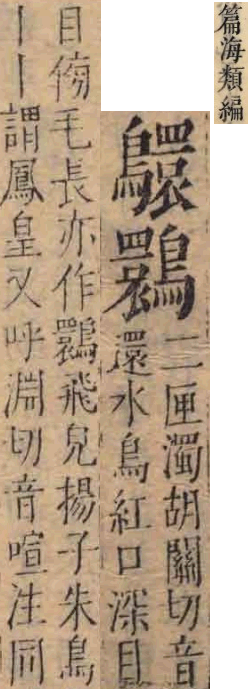 篇海類編
䴉
二匣濁胡關切音
還水鳥紅口深目
目傍毛長亦作䴉飛皃揚子朱鳥
丨丨謂鳳皇又呼淵切音喧注同